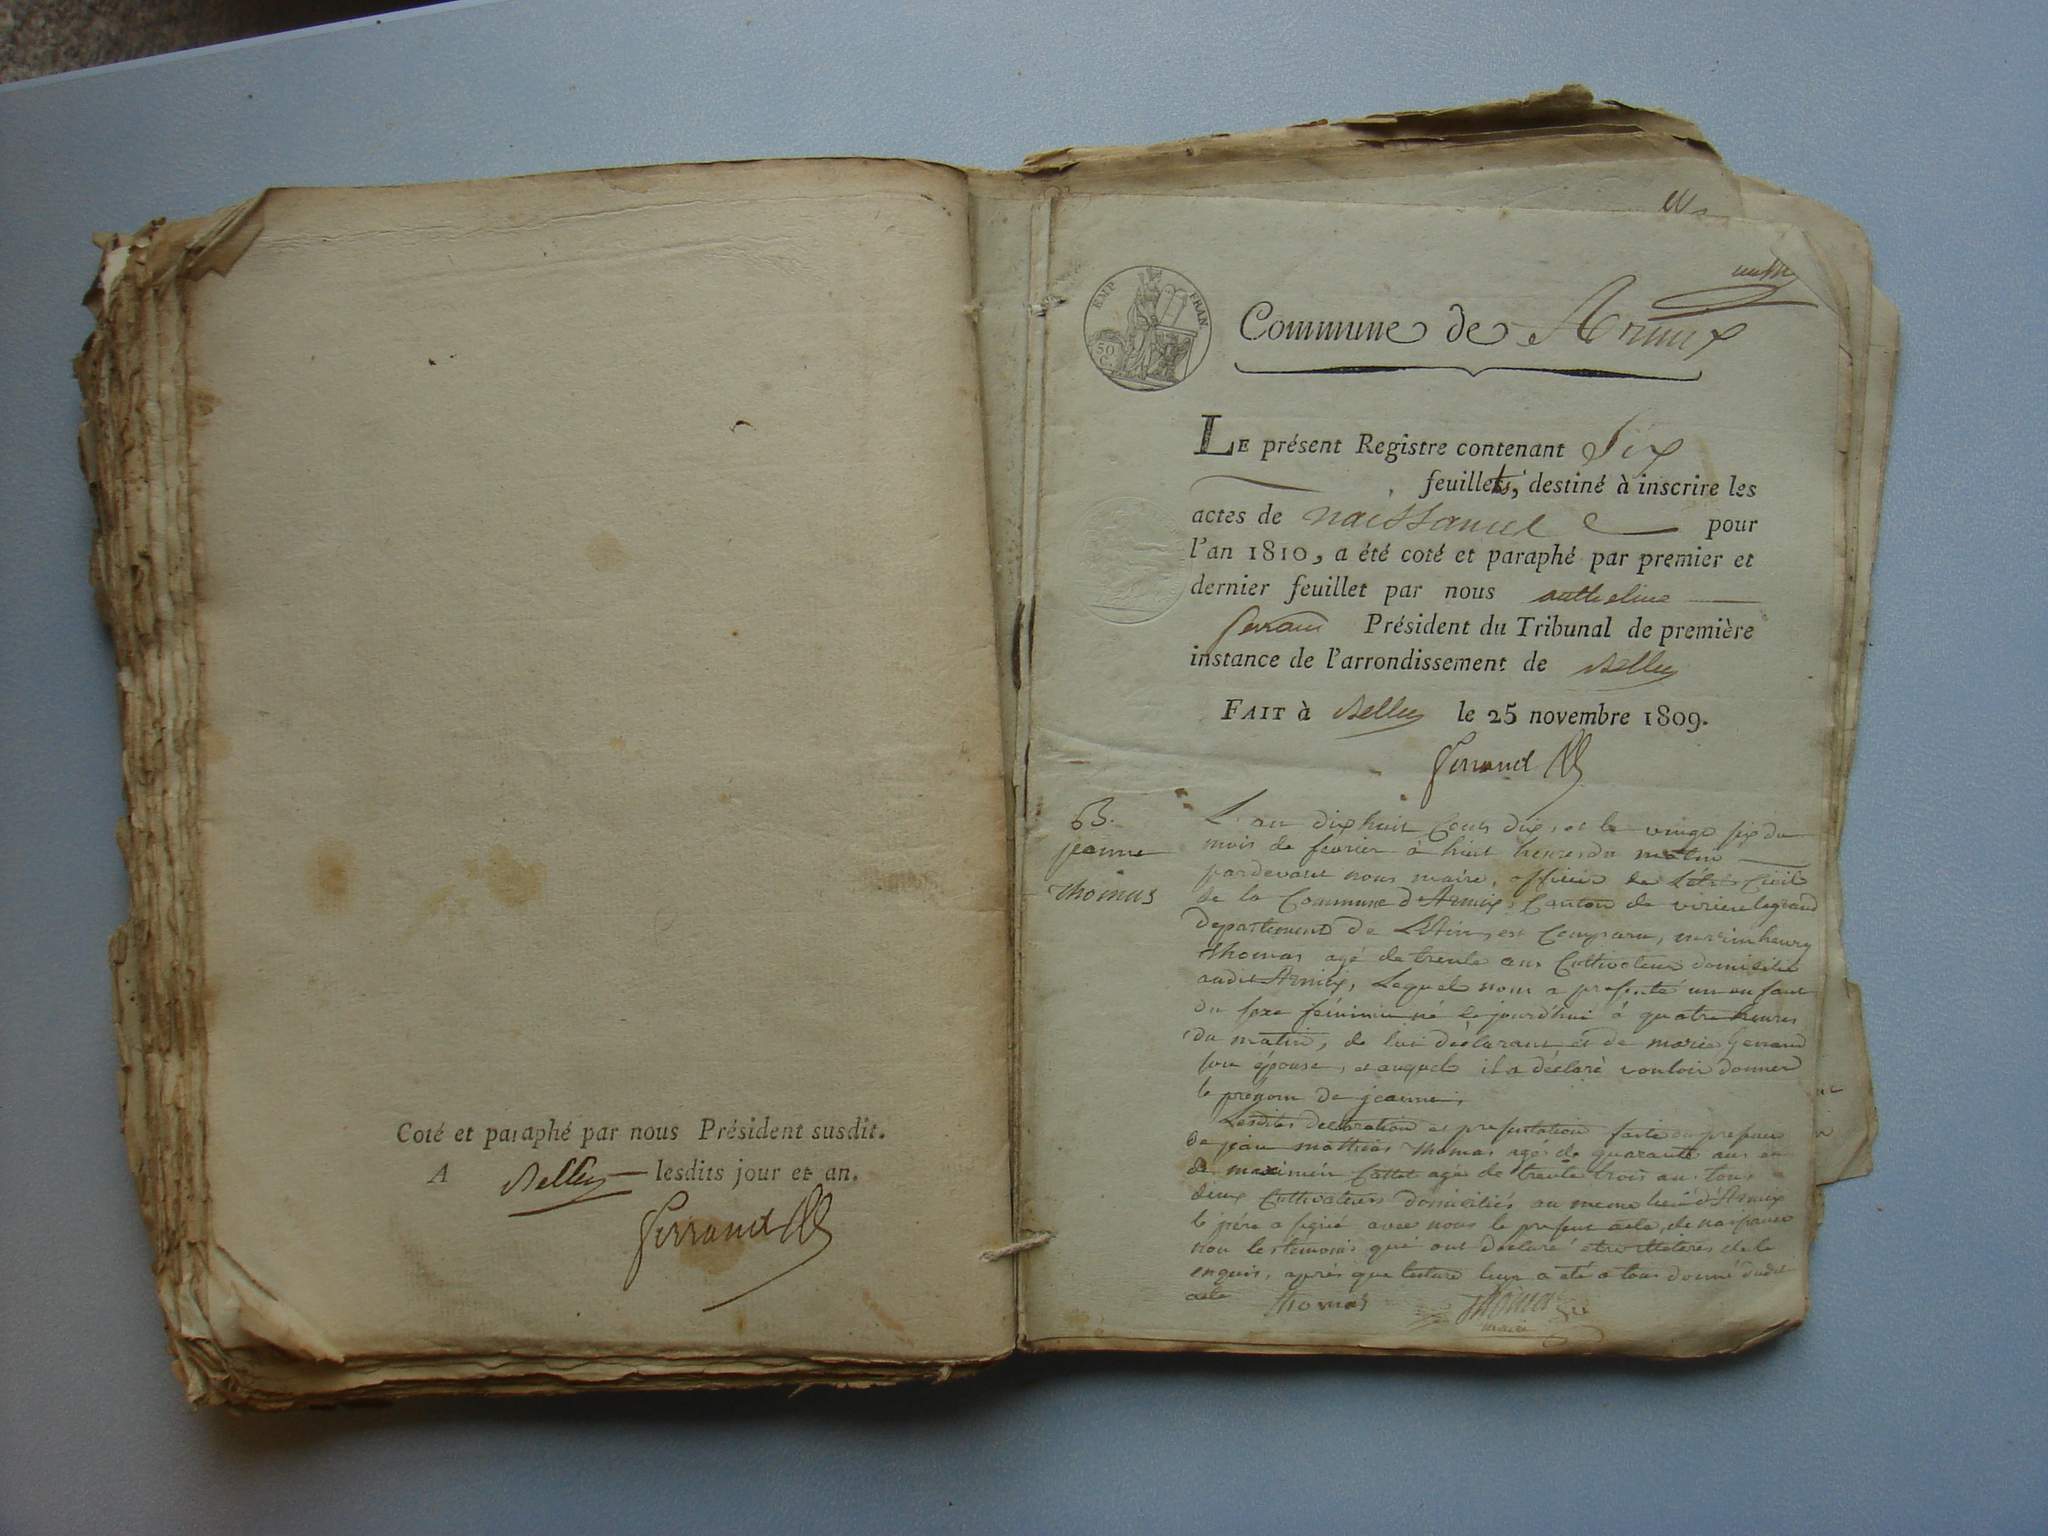 Coté et paraphé par nous Président susdit.
A Belley lesdits jour et an.
Ferrand
EMP FRAN
50 C.
Commune de Armix
LE présent Registre contenant Six
feuillets, destiné à inscrire les
actes de naissance pour
l'an 1810, a été coté et paraphé par premier et
dernier feuillet par nous anthelme
ferrand Président du Tribunal de première
instance de l'arrondissement de Belley
FAIT à Belley le 25 novembre 1809.
Ferrand
jeanne
Thomas
L'an dix huit Cent dix, et le vingt six du
mois de fevrier à huit heures du matin
pardevant nous maire, officier de l'état Civil
de la Commune d'Armix, Canton de virieu legrand
Departement de L'Ain, est Comparu,
Thomas agé de trente ans Cultivateur domicilié
audit Armix, Lequel nous a presenté un enfant
du sexe féminin né cejourd'hui à quatre heures
du matin, de lui déclarant et de marie ferrand
son épouse, et auquel il a déclaré vouloir donner
le prénom de jeanne,
Lesdites declaration et presentation faites en presence
De jean mathias Thomas agé de quarante ans et
de maximin Cattet agé de trente trois ans tous
deux Cultivateurs domiciliés au meme lieu d'Armix
le père a signé avec nous le present acte de naissance
non les temoins qui ont declaré etre illiteres de ce
enquis, après que lecture leur a été a tous donné dudit
acte Thomas Thomas
maire